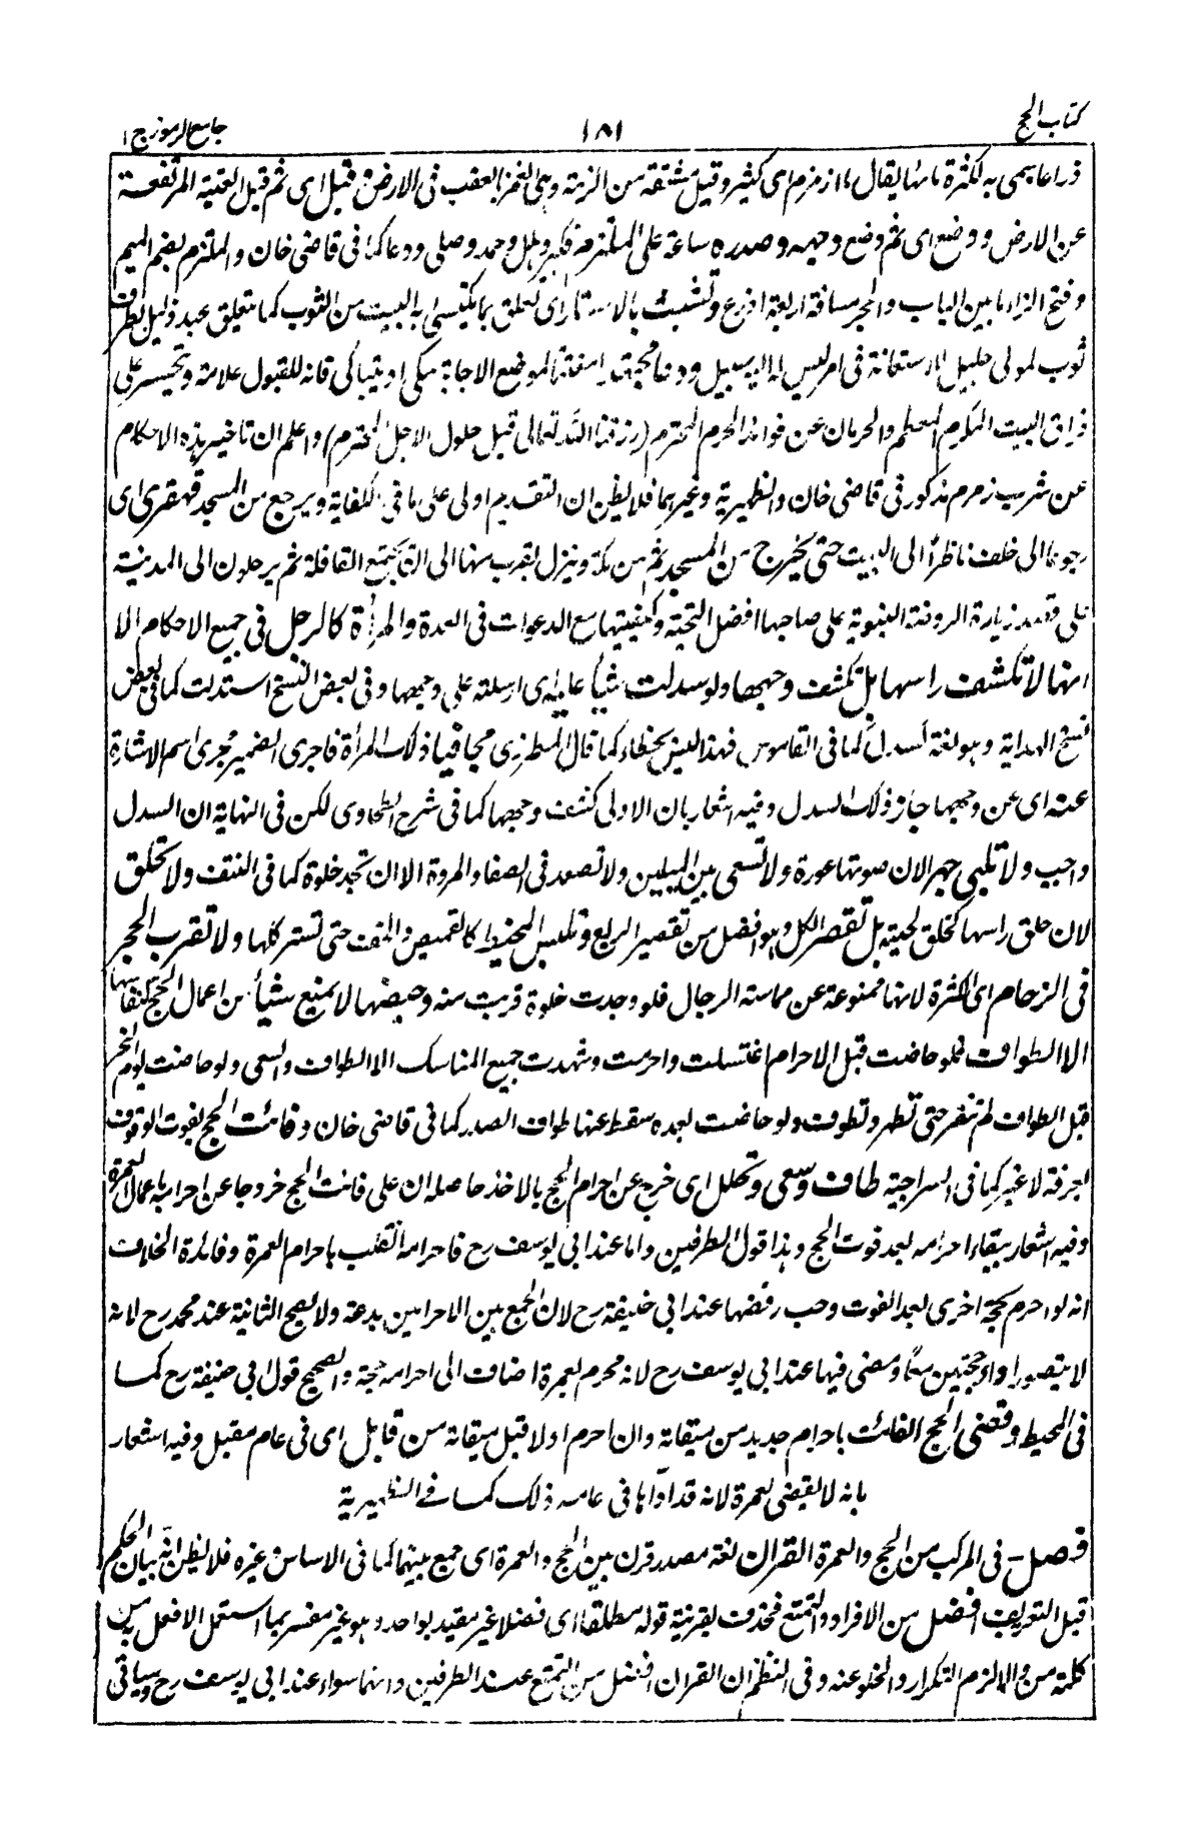 كتاب الحج ١٨١ جامع الرموز ج ١
ذراعا سمى به لكثرة مائها يقال ماء زمزم اى كثير وقيل مشتقة من الزمة وهى الغمز بالعقب فى الارض وقبل اى ثم قبل العتبة المرتفعة
عن الارض ووضع اى ثم وضع وجهه وصدره ساعة على الملتزم فكبر وهلل وحمد وصلى ودعا كما فى قاضى خان والملتزم بضم الميم
وفتح الزاء ما بين الباب والحجر مسافة اربعة اذرع وتشبث بالاستار اى تعلق بما يكتسى به البيت من الثوب كما يتعلق عبد ذليل بطرف
ثوب لمولى جليل لاستعانة فى امر ليس له اليه سبيل ودعا مجتهدا لموضع الاجابة يبكى او يتباكى فانه للقبول علامة ويتحسر على
فراق البيت المكرم المعظم والحرمان عن فوائد الحرم المحترم (رزقنا الله تعالى قبل حلول الاجل المخترم) واعلم ان تاخير هذه الاحكام
عن شرب زمزم مذكور فى قاضى خان والظهيرية وغيرهما فلا يظن ان التقديم اولى على ما فى الكفاية ويرجع من المسجد قهقرى اى
رجوعا الى خلف ناظرا الى البيت حتى يخرج من المسجد ثم من مكة وينزل بقرب منها الى ان يجتمع القافلة ثم يرحلون الى المدينة
على قصد زيارة الروضة النبوية على صاحبها افضل التحية وكيفيتها مع الدعوات فى العمدة والمرأة كالرجل فى جميع الاحكام الا
انها لا تكشف راسها بل تكشف وجهها ولو سدلت شيأ عليه اى ارسلته على وجهها وفى بعض النسخ استدلت كما فى بعض
نسخ الهداية وهو لغة اسدل كما فى القاموس فهذا ليس بخطاء كما قال المطرزى مجافيا ذلك المرأة فاجرى الضمير مجرى اسم الاشارة
عنه اى عن وجهها جاز ذلك السدل وفيه اشعار بان الاولى كشف وجهها كما فى شرح الطحاوى لكن فى النهاية ان السدل
واجب ولا تلبى جهرا لان صوتها عورة ولا تسعى بين الميلين ولا تصعد فى الصفا والمروة الا ان تجد خلوة كما فى النتف ولا تحلق
لان حلق راسها كحلق لحيته بل تقصر الكل وهو افضل من تقصير الربع وتلبس المخيط كالقميص والخف حتى تستر كلها ولا تقرب الحجر
فى الزحام اى الكثرة لانها ممنوعة عن مماسة الرجال فلو وجدت خلوة قربت منه وحيضها لا يمنع شيأ من اعمال الحج كنفاسها
الا الطواف فلو حاضت قبل الاحرام اغتسلت واحرمت وشهدت جميع المناسك الا الطواف والسعى ولو حاضت يوم النحر
قبل الطواف لم تنفر حتى تطهر وتطوف ولو حاضت بعده سقط عنها طواف الصدر كما فى قاضى خان وفائت الحج بفوت الوقوف
بعرفة لا غير كما فى السراجية طاف وسعى وتحلل اى خرج عن احرام الحج بالاخذ حاصله ان على فائت الحج خروجا عن احرامه باعمال العمرة
وفيه اشعار ببقاء احرامه بعد فوت الحج وهذا قول الطرفين واما عند ابى يوسف رح فاحرامه انقلب باحرام العمرة وفائدة الخلاف
انه لو احرم بحجة اخرى بعد الفوت وجب رفضها عند ابى حنيفة رح لان الجمع بين الاحرامين بدعة ولا يصح الثانية عند محمد رح لانه
لا يتصور اداء حجتين معا ومضى فيها عند ابى يوسف رح لانه محرم بعمرة اضاف الى احرامه حجة والصحيح قول ابى حنيفة رح كما
فى المحيط وقضى الحج الفائت باحرام جديد من ميقاته وان احرم اولا قبل ميقاته من قابل اى فى عام مقبل وفيه اشعار
بانه لا يقضى العمرة لانه قد اداها فى عامه ذلك كما فى الظهيرية
فصل - فى المركب من الحج والعمرة القران لغة مصدر قرن بين الحج والعمرة اى جمع بينهما كما فى الاساس وغيره فلا يظن انه بيان الحكم
قبل التعريف افضل من الافراد والتمتع فحذف بقرينة قوله مطلقا اى فضلا غير مقيد بواحد وهو غير مفسر بما استعمل الافعل من
كلمة من والا لزم التكرار والخلو عنه وفى النظم ان القران افضل من التمتع عند الطرفين وانهما سواء عند ابى يوسف رح وسياتى